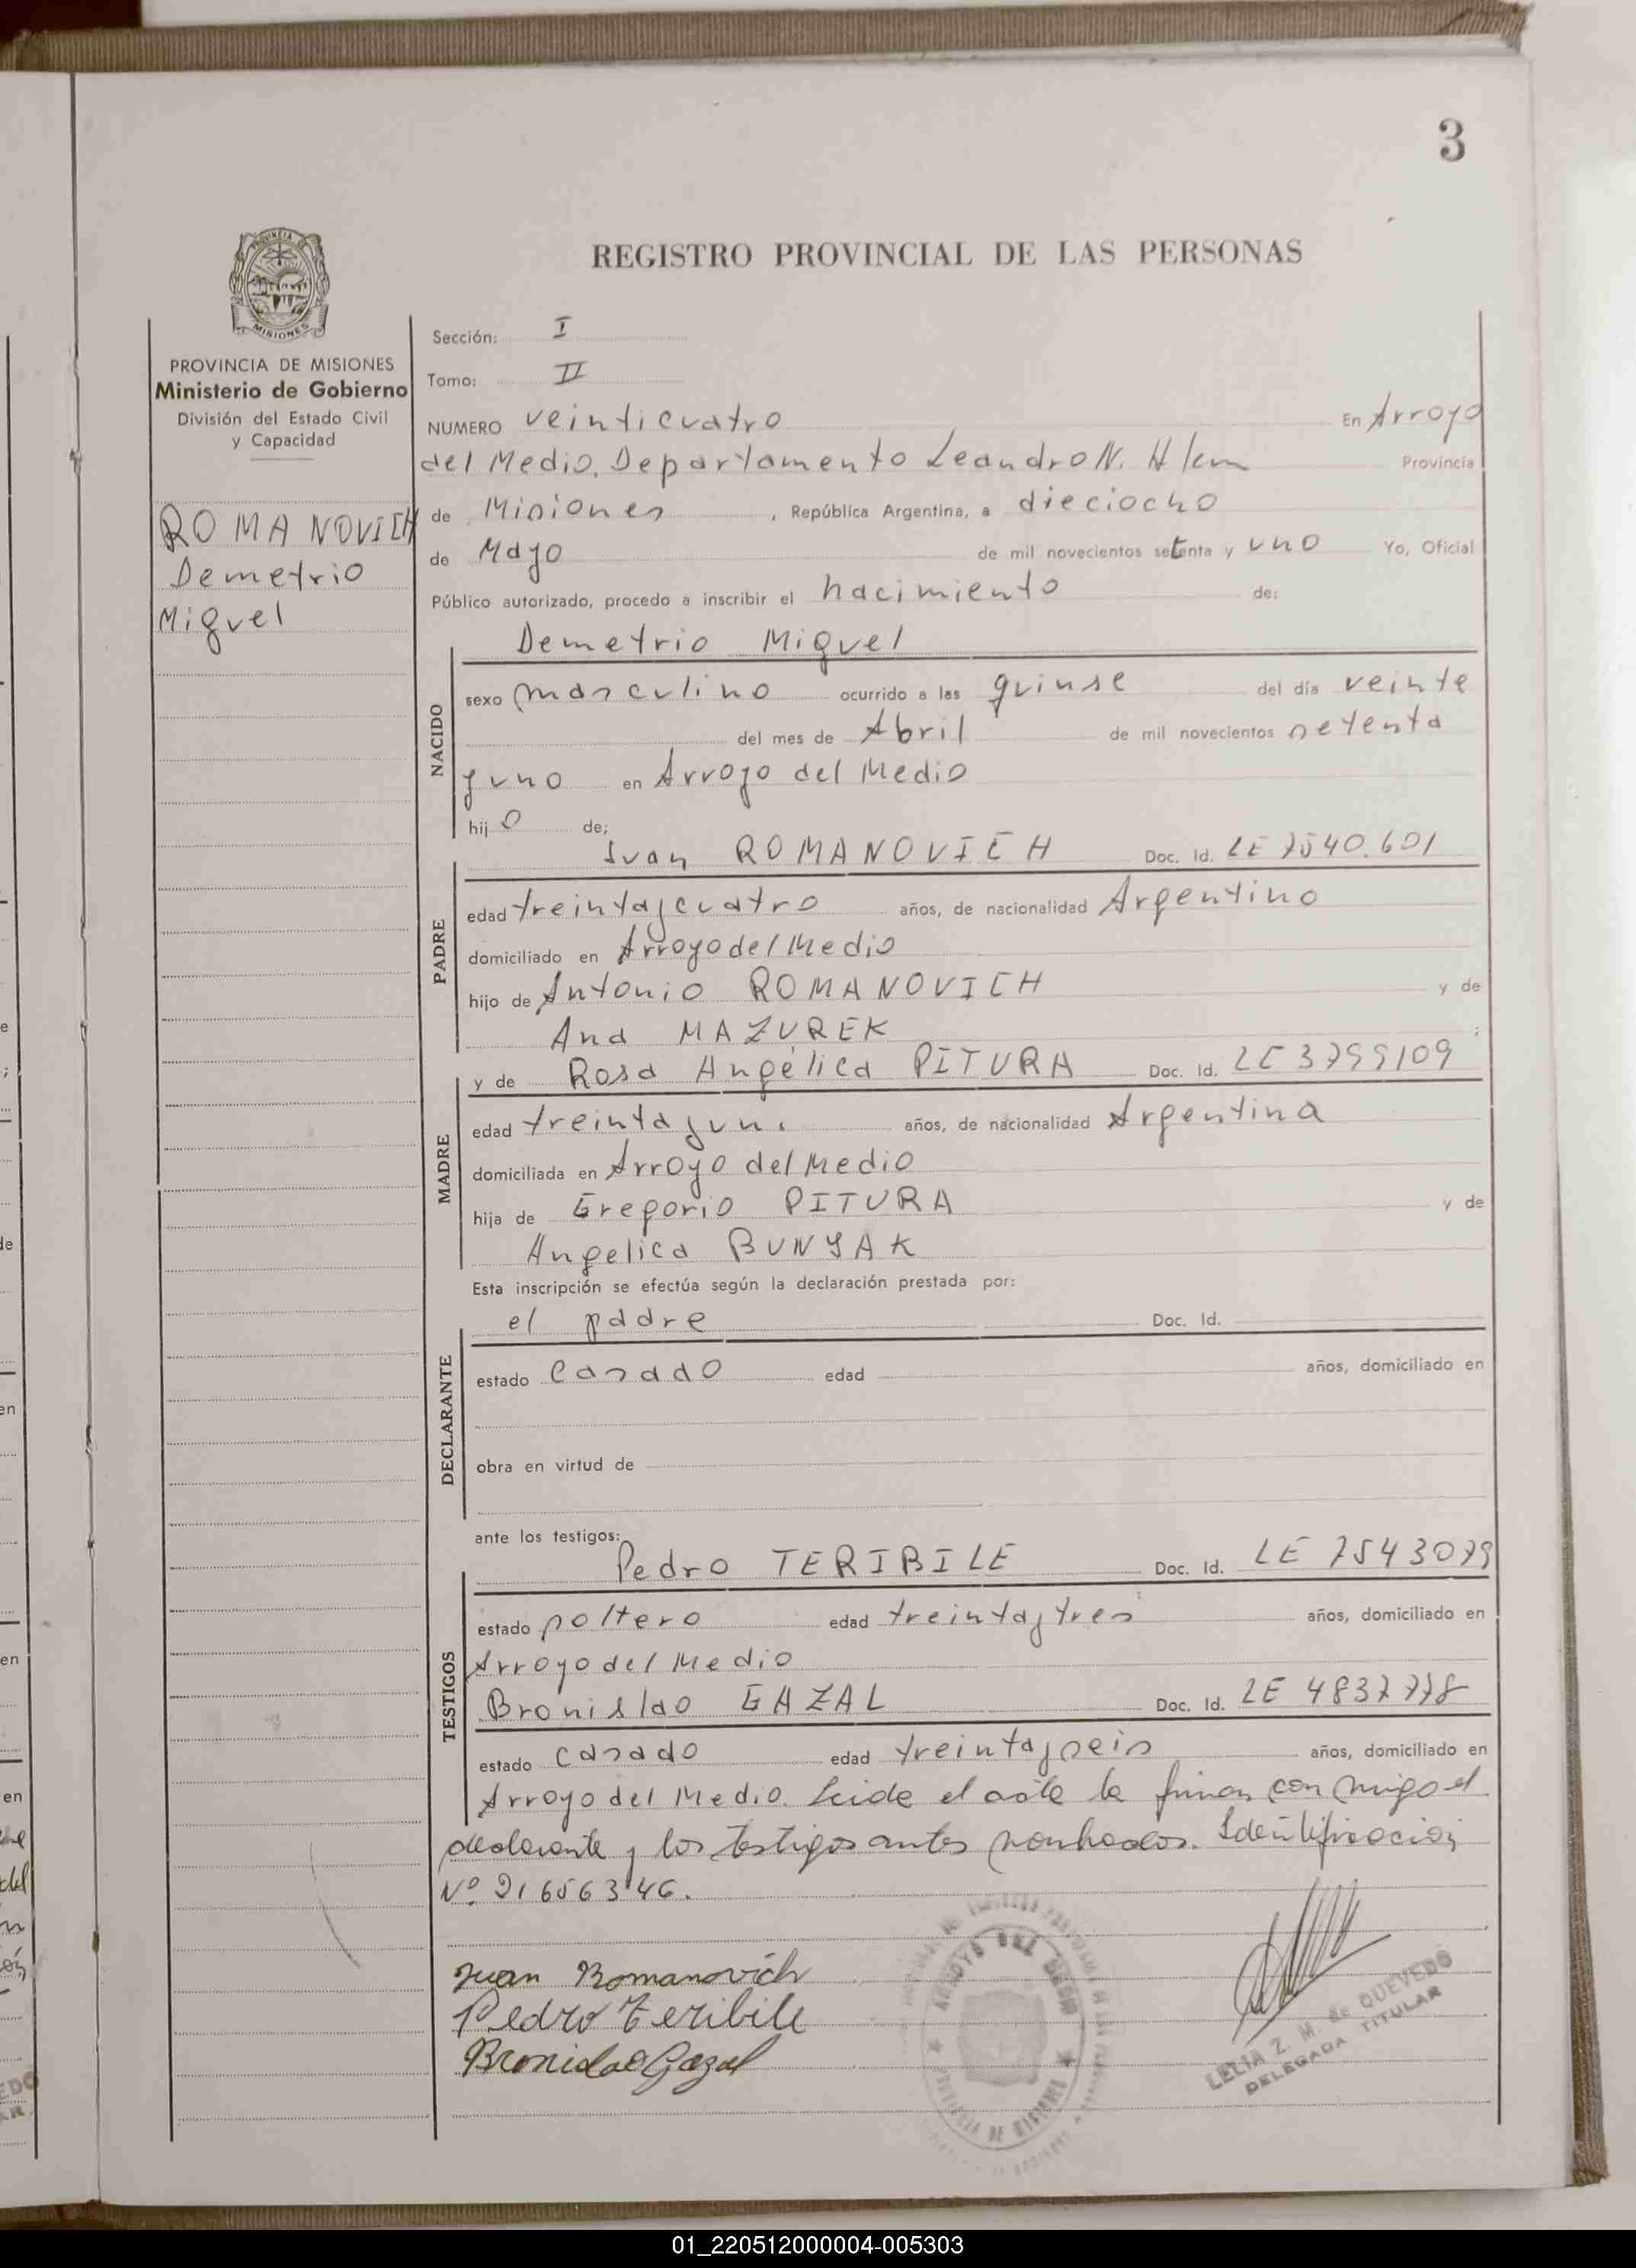 3
REGISTRO PROVINCIAL DE LAS PERSONAS
PROVINCIA DE MISIONES
Ministerio de Gobierno
División del Estado Civil
y Capacidad
ROMANOVICH
Demetrio
Miguel
Sección: I
Tomo: II
NUMERO veinticuatro En Arroyo
del Medio, Departamento Leandro N. Alem Provincia
de Misiones, República Argentina, a dieciocho
de Mayo de mil novecientos setenta y uno Yo, Oficial
Público autorizado, procedo a inscribir el nacimiento de:
Demetrio Miguel
NACIDO
sexo masculino ocurrido a las quinse del día veinte
del mes de Abril de mil novecientos setenta
y uno en Arroyo del Medio
hijo de;
Juan ROMANOVICH Doc. Id. LE 7540.601
PADRE
edad treinta y cuatro años, de nacionalidad Argentino
domiciliado en Arroyo del Medio
hijo de Antonio ROMANOVICH y de
Ana MAZUREK ;
y de Rosa Angélica PITURA Doc. Id. LC 3799109
MADRE
edad treinta y un. años, de nacionalidad Argentina
domiciliada en Arroyo del Medio
hija de Gregorio PITURA y de
Angelica BUNYAK
Esta inscripción se efectúa según la declaración prestada por:
el padre Doc. Id.
DECLARANTE
estado casado edad años, domiciliado en
obra en virtud de
ante los testigos:
Pedro TERIBILE Doc. Id. LE 7543079
TESTIGOS
estado soltero edad treinta y tres años, domiciliado en
Arroyo del Medio
Bronislao GAZAL Doc. Id. LE 4837778
estado casado edad treinta y seis años, domiciliado en
Arroyo del Medio. Leida el acta la firman con migo el
declarante y los testigos antes nombrados. Identificación
Nº 21656346.
Juan Romanovich
Pedro Teribile
Bronislao Gazal
ARROYO DEL MEDIO
PROVINCIA DE MISIONES
LELIA Z. M. de QUEVEDO
DELEGADA TITULAR
01_220512000004-005303